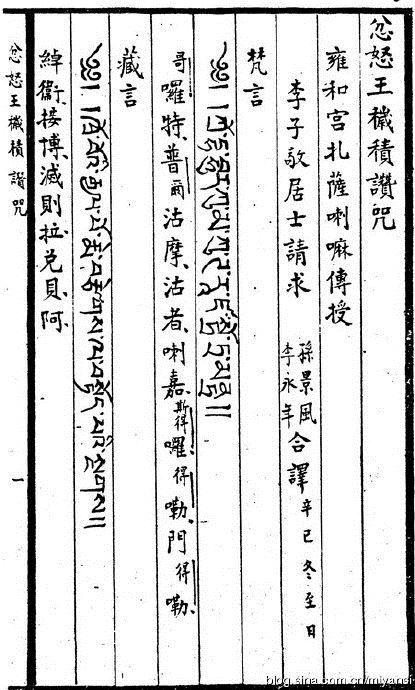 忿怒王穢積讚咒
雍和宮扎薩喇嘛傳授
李子敬居士請求 孫景風 李永年 合譯 辛巳冬至日
梵言
哥囉特普爾沽摩沽者喇嘉斯得囉得嘞門得嘞
藏言
༄༅། །ཁྲོ་བོའི་རྒྱལ་པོ་སྨེ་བརྩེགས་ལ་བསྟོད་པའི་སྔགས།།
綽衞接博滅則拉兌貝阿
忿怒王穢積讚咒
一
blog.sina.com.cn/miyansi